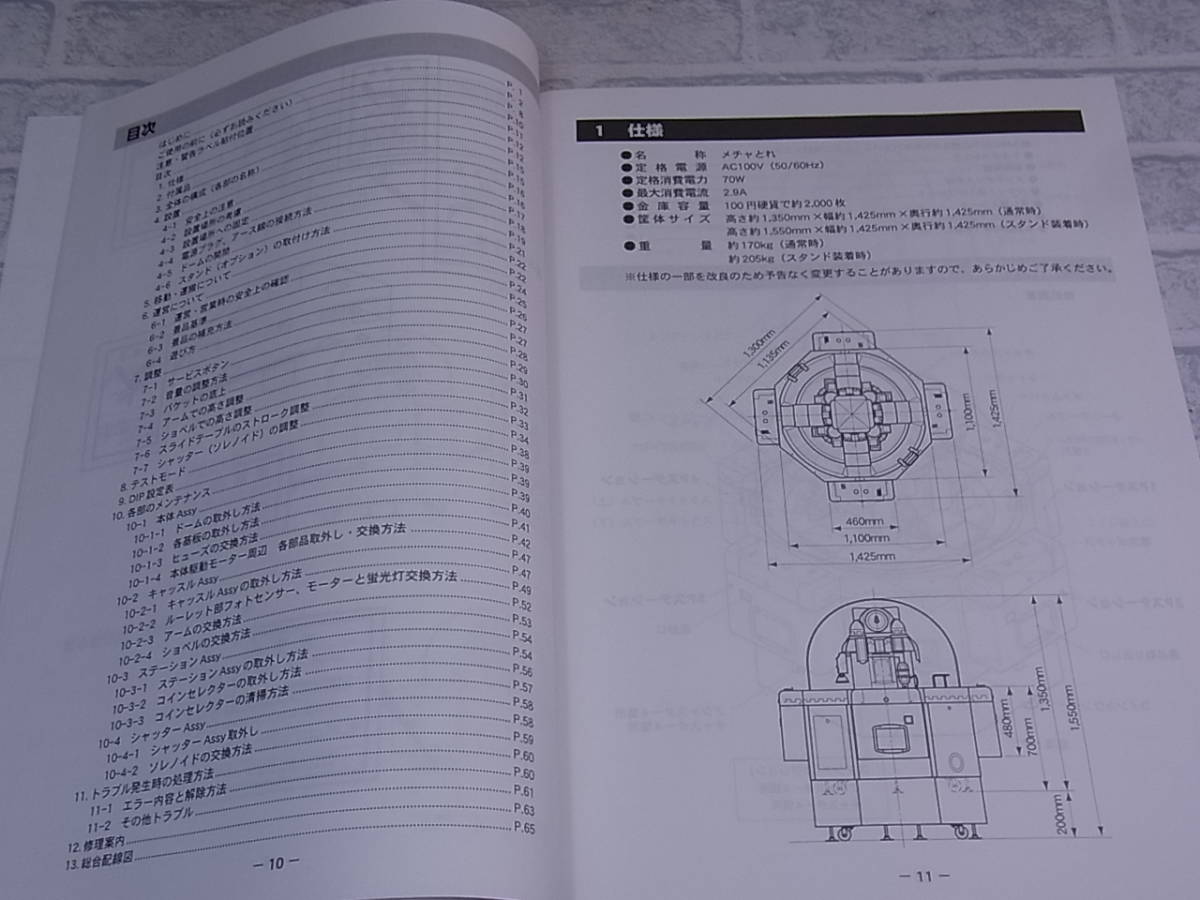 目次
はじめに P. 1
ご使用の前に(必ずお読みください) P. 2
注意・警告ラベル貼付位置 P. 8
目次 P.10
1. 仕様 P.11
2. 付属品 P.12
3. 全体の構成(各部の名称)
4. 設置
4-1 安全上の注意
4-2 設置場所の考慮
4-3 設置場所への固定
4-4 電源プラグ、アース線の接続方法
4-5 ドームの開閉
4-6 スタンド(オプション)の取付け方法
5. 移動・運搬について
6. 運営について
6-1 運営・営業時の安全上の確認
6-2 景品基準
6-3 景品の補充方法
6-4 遊び方
7. 調整
7-1 サービスボタン
7-2 音量の調整方法
7-3 バケットの底上
7-4 アームでの高さ調整
7-5 ショベルでの高さ調整
7-6 スライドテーブルのストローク調整
7-7 シャッター(ソレノイド)の調整
8. テストモード
9. DIP設定表
10. 各部のメンテナンス
10-1 本体Assy
10-1-1 ドームの取外し方法
10-1-2 各基板の取外し方法
10-1-3 ヒューズの交換方法
10-1-4 本体駆動モーター周辺 各部品取外し・交換方法
10-2 キャッスルAssy
10-2-1 キャッスルAssyの取外し方法
10-2-2 ルーレット部フォトセンサー、モーターと蛍光灯交換方法
10-2-3 アームの交換方法
10-2-4 ショベルの交換方法
10-3 ステーションAssy
10-3-1 ステーションAssyの取外し方法
10-3-2 コインセレクターの取外し方法
10-3-3 コインセレクターの清掃方法
10-4 シャッターAssy
10-4-1 シャッターAssy取外し
10-4-2 ソレノイドの交換方法
11. トラブル発生時の処理方法 P.60
11-1 エラー内容と解除方法 P.60
11-2 その他トラブル P.61
12. 修理案内 P.63
13. 総合配線図 P.65
− 10 −
1 仕様
●名称 メチャとれ
●定格電源 AC100V(50/60Hz)
●定格消費電力 70W
●最大消費電流 2.9A
●金庫容量 100円硬貨で約2,000枚
●筐体サイズ 高さ約1,350mm×幅約1,425mm×奥行約1,425mm(通常時)
高さ約1,550mm×幅約1,425mm×奥行約1,425mm(スタンド装着時)
●重量 約170kg(通常時)
約205kg(スタンド装着時)
※仕様の一部を改良のため予告なく変更することがありますので、あらかじめご了承ください。
1,300mm
1,135mm
1,100mm
1,425mm
460mm
1,100mm
1,425mm
480mm
700mm
1,350mm
1,550mm
200mm
− 11 −